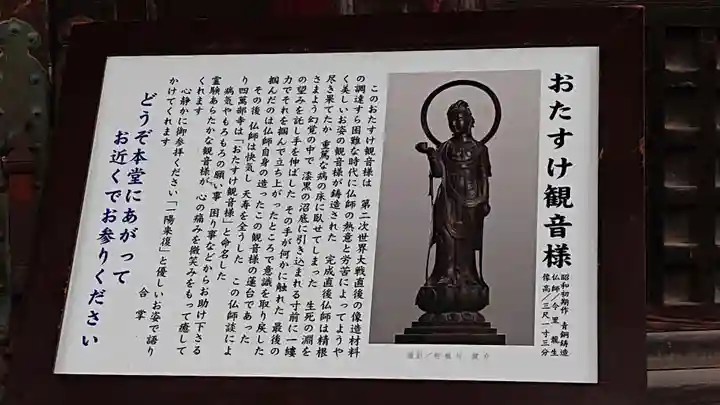 おたすけ観音様
昭和初期作 青銅鋳造
仏師/今里 龍生
像高/三尺一寸三分
このおたすけ観音様は 第二次世界大戦直後の像造材料
の調達すら困難な時代に仏師の熱意と労苦によってようや
く美しいお姿の観音様が鋳造された 完成直後仏師は精根
尽き果てたか 重篤な病の床に臥せてしまった 生死の淵を
さまよう幻覚の中で 漆黒の沼底に引き込まれる寸前に一縷
の望みを託し手を伸ばした その手が何かに触れた 最後の
力でそれを掴んで立ち上がったところで意識を取り戻した
掴んだのは仏師自身の造ったこの観音様の蓮台であった
その後 仏師は快気し 天寿を全うした この仏師談によ
り四萬部寺は「おたすけ観音様」と命名した
病気やもろもろの願い事 困り事などからお助け下さる
霊験あらたかな観音様が、心の痛みを微笑みをもって癒して
くれます
心静かに御参拝ください「一陽来復」と優しいお姿で語り
かけてくれます
合掌
どうぞ本堂にあがって
お近くでお参りください
撮影/